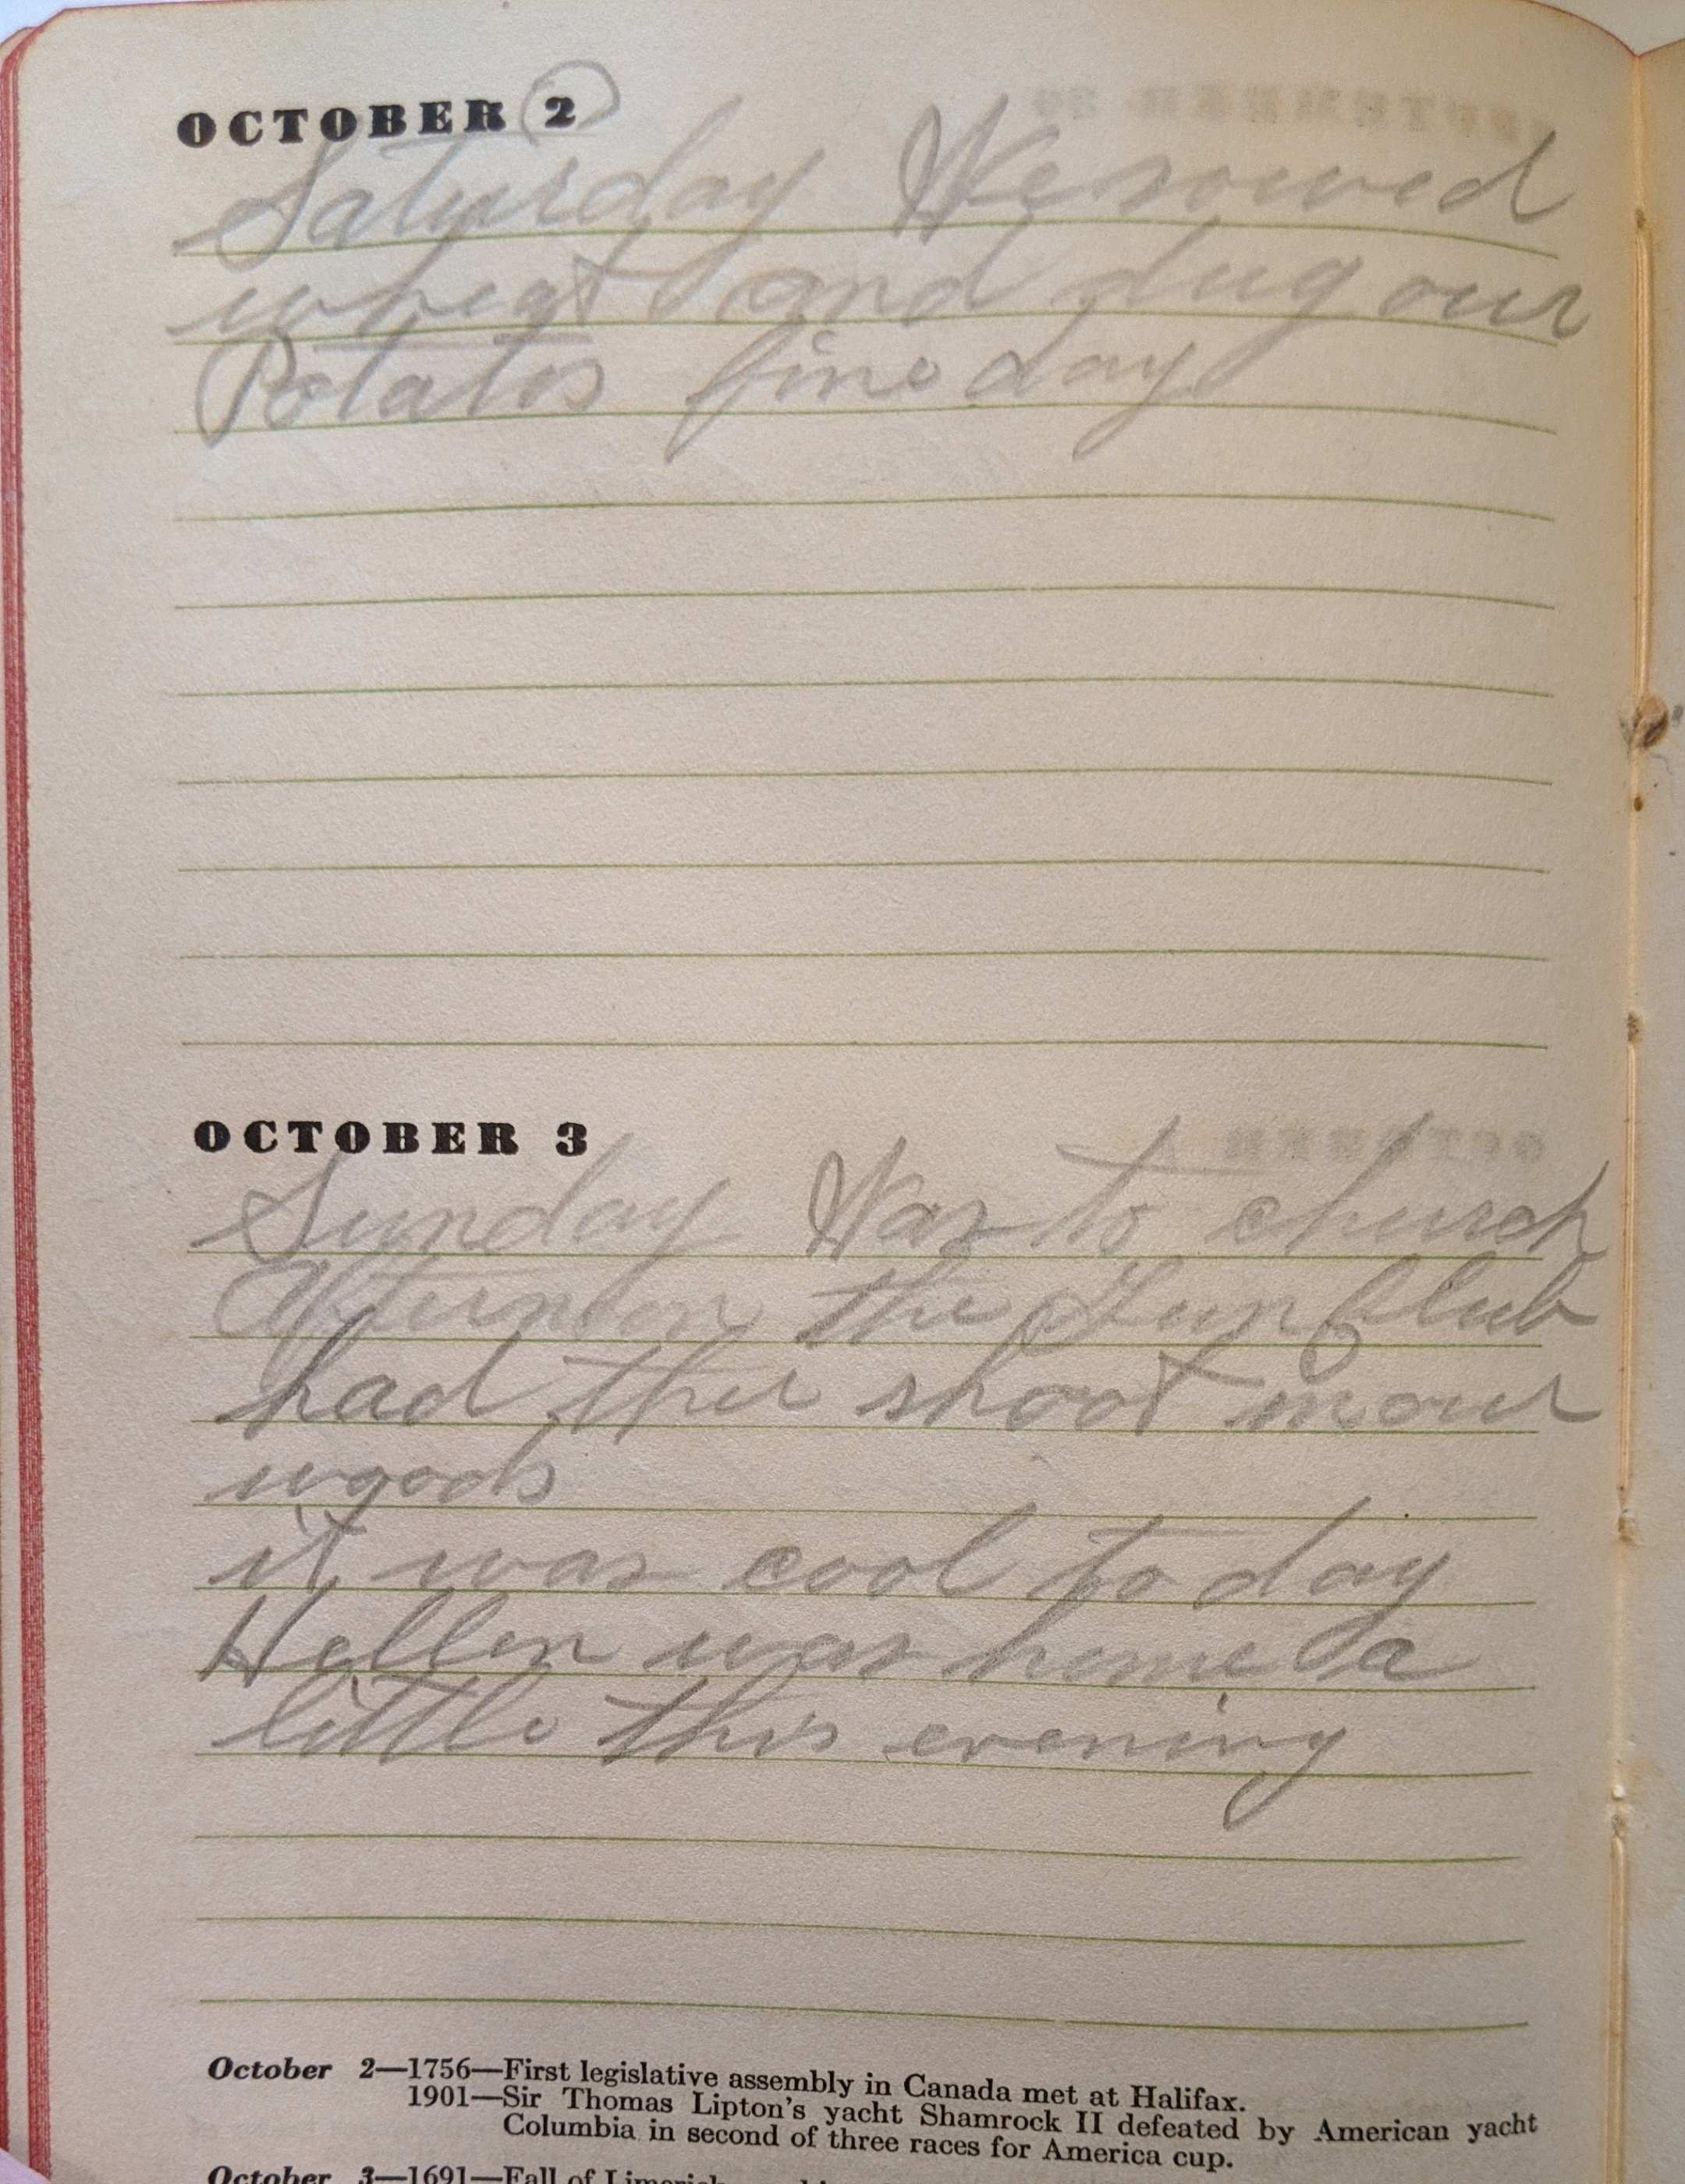 OCTOBER 2
Saturday We sowed
wheat and dug our
Potatos fine day
OCTOBER 3
Sunday Was to church
Afternoon the Gun Club
had ther shoot in our
woods
it was cool to day
Hellen was home a
little this evening
October 2—1756—First legislative assembly in Canada met at Halifax.
1901—Sir Thomas Lipton's yacht Shamrock II defeated by American yacht
Columbia in second of three races for America cup.
October 3—1691—Fall of Limerick